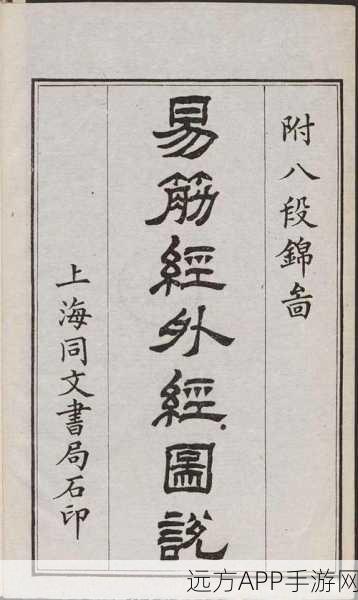 附八段錦啚
易筋經外經圖說
上海同文書局石印
远方APP手游网